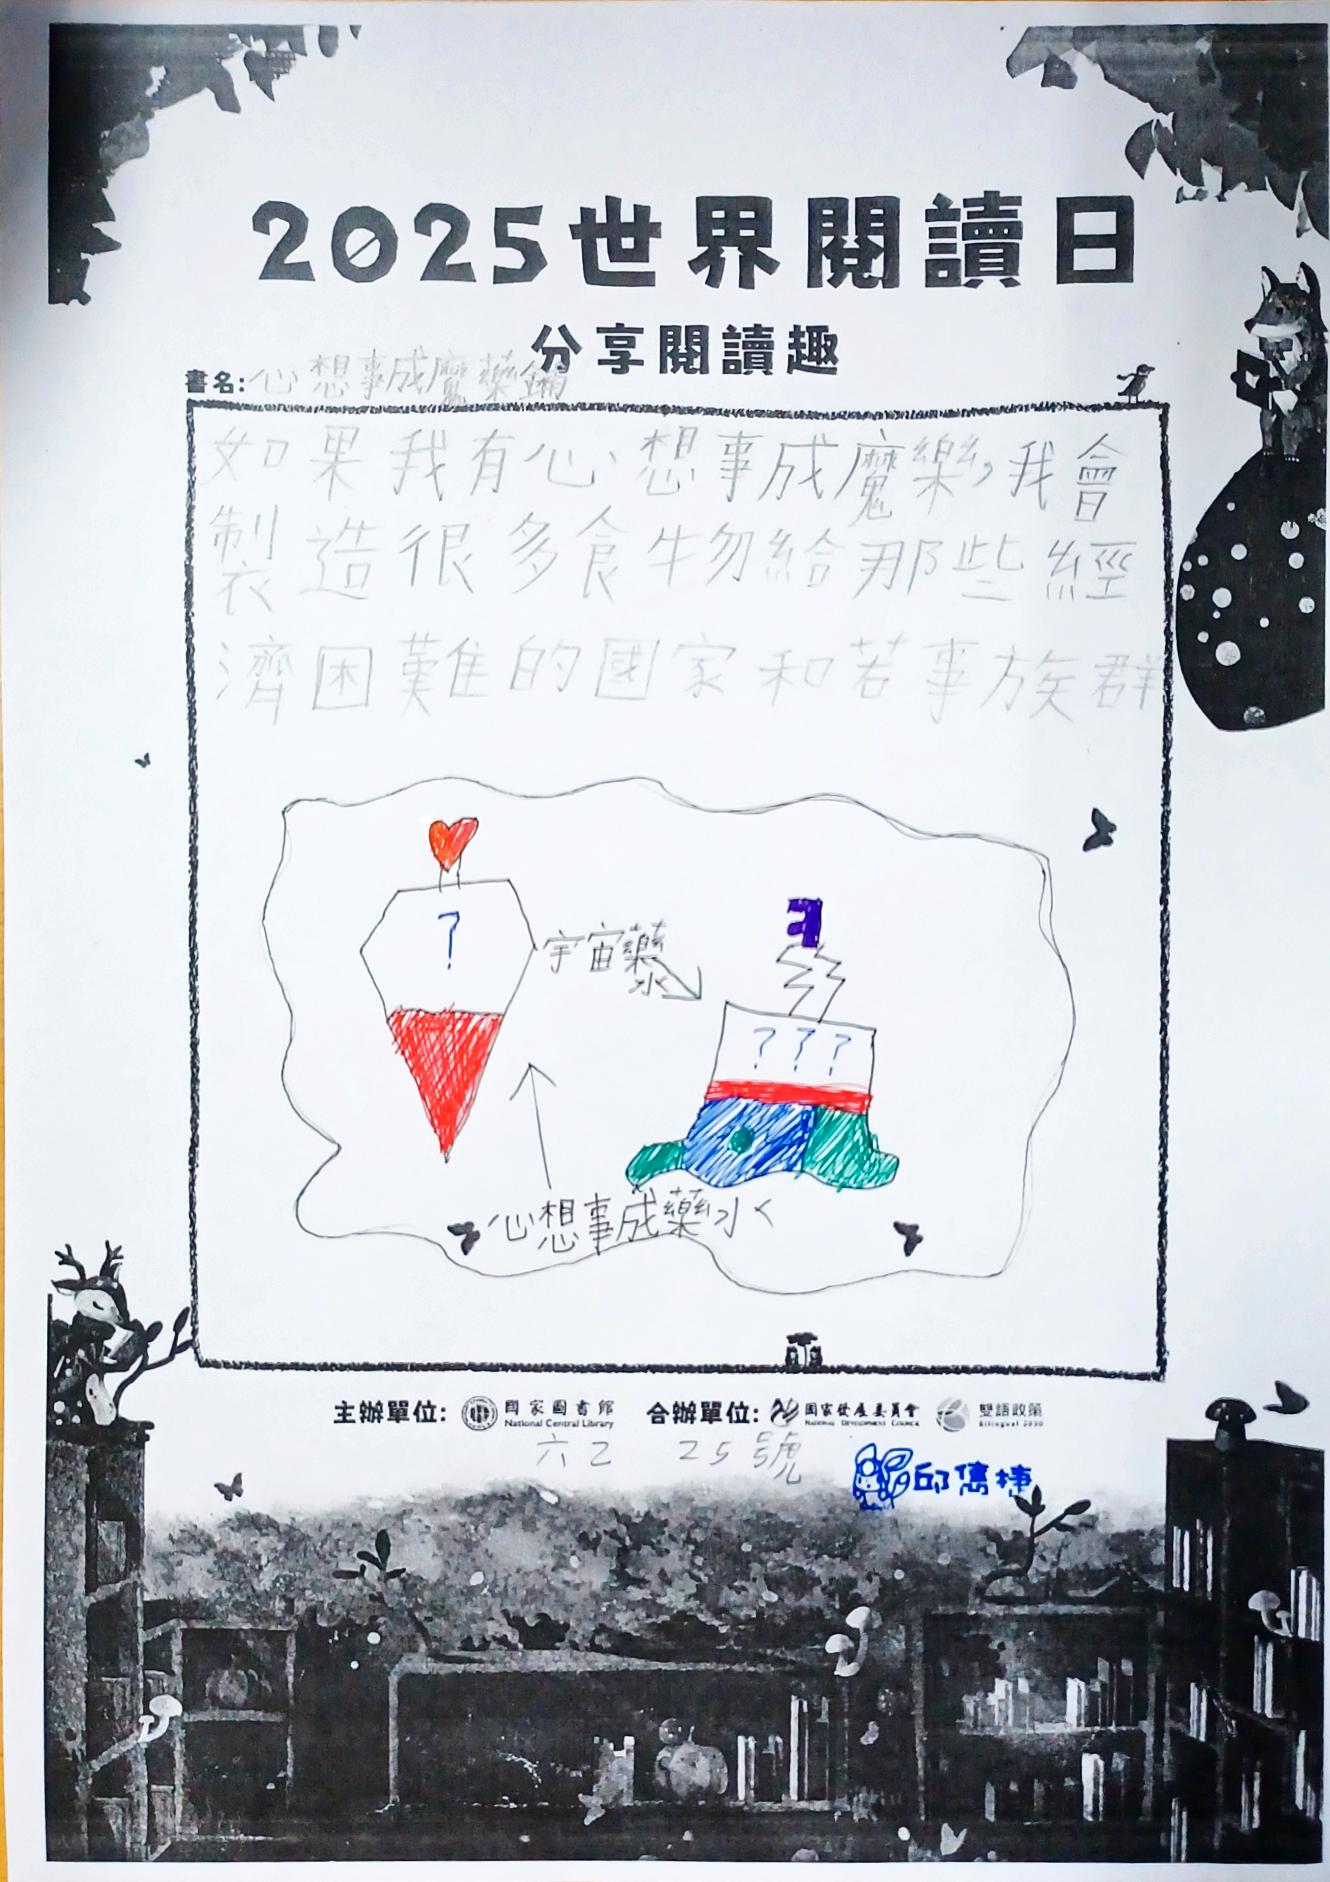 2025世界閱讀日
分享閱讀趣
書名:心想事成魔藥鋪
如果我有心想事成魔樂,我會
製造很多食物給那些經
濟困難的國家和若事族群
?
宇宙藥水
???
心想事成藥水
主辦單位: 國家圖書館 National Central Library 合辦單位: 國家發展委員會 NATIONAL DEVELOPMENT COUNCIL 雙語政策 Bilingual 2030
六乙 25號
邱雋棟